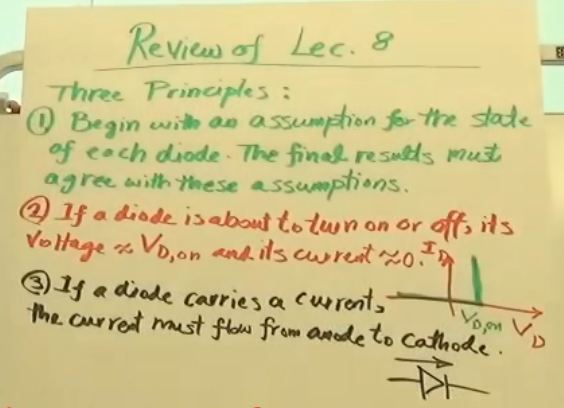 Review of Lec. 8
Three Principles:
① Begin with an assumption for the state
of each diode. The final results must
agree with these assumptions.
② If a diode is about to turn on or off, its
Voltage ≈ VD,on and its current ≈ 0. ID
③ If a diode carries a current,
VD,on VD
the current must flow from anode to cathode.